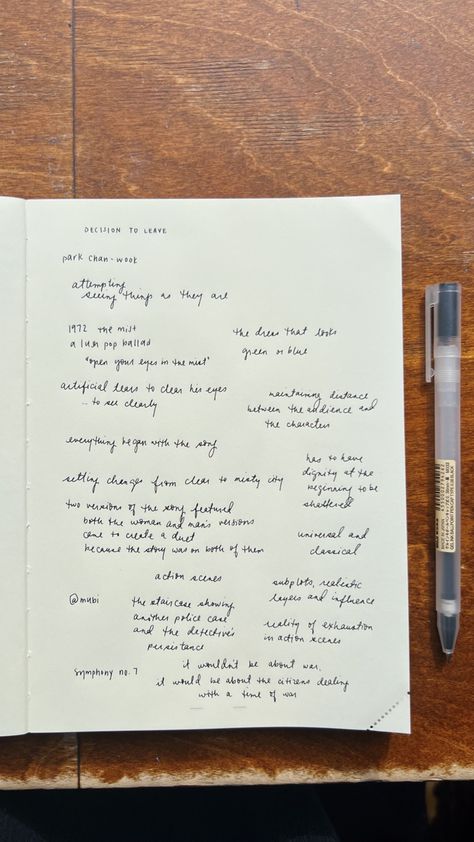 DECISION TO LEAVE
park chan-wook
attempting
seeing things as they are
1972 the mist
a luer pop ballad
"open your eyes in the mist"
the dress that looks
green or blue
artificial tears to clear his eyes
... to see clearly
maintaining distance
between the audience and
the characters
everything began with the song
setting changes from clear to misty city
has to have
dignity at the
beginning to be
shattered
two versions of the song featured
both the woman and man's versions
came to create a duet
because the story was on both of them
universal and
classical
action scenes
subplots, realistic
layers and influence
@mubi
the staircase showing
another police case
and the detective's
persistance
reality of exhaustion
in action scenes
symphony no. 7
it wouldn't be about war,
it would be about the citizens dealing
with a time of war